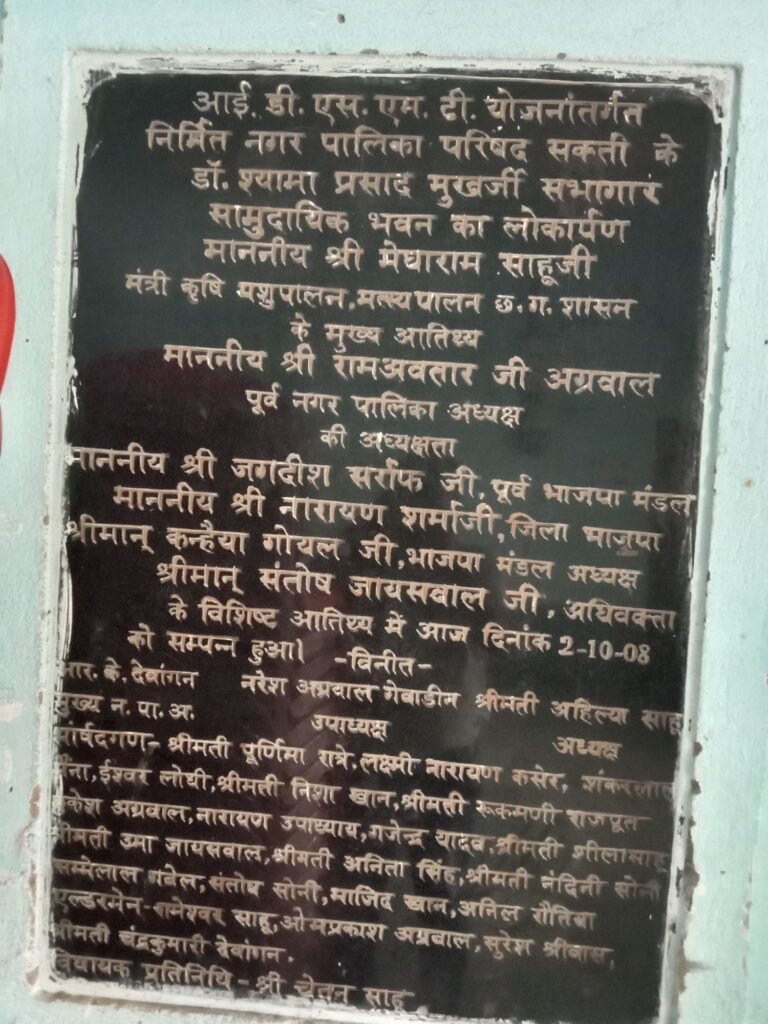 आई. डी. एस. एम. टी. योजनांतर्गत
निर्मित नगर पालिका परिषद सकती के
डॉ. श्यामा प्रसाद मुखर्जी सभागार
सामुदायिक भवन का लोकार्पण
माननीय श्री मेघाराम साहूजी
मंत्री कृषि पशुपालन, मत्स्यपालन छ. ग. शासन
के मुख्य आतिथ्य
माननीय श्री रामअवतार जी अग्रवाल
पूर्व नगर पालिका अध्यक्ष
की अध्यक्षता
माननीय श्री जगदीश सर्राफ जी, पूर्व भाजपा मंडल
माननीय श्री नारायण शर्माजी, जिला भाजपा
श्रीमान् कन्हैया गोयल जी, भाजपा मंडल अध्यक्ष
श्रीमान् संतोष जायसवाल जी, अधिवक्ता
के विशिष्ट आतिथ्य में आज दिनांक 2-10-08
को सम्पन्न हुआ। -विनीत-
आर. के. देवांगन नरेश अग्रवाल गेवाडीन श्रीमती अहिल्या साहू
मुख्य न. पा. अ. उपाध्यक्ष अध्यक्ष
पार्षदगण- श्रीमती पूर्णिमा रात्रे, लक्ष्मी नारायण कसेर, शंकरलाल
ईश्वर लोधी, श्रीमती निशा खान, श्रीमती रूकमणी राजपूत
अग्रवाल, नारायण उपाध्याय, गजेन्द्र यादव, श्रीमती शीलासाहू
श्रीमती उमा जायसवाल, श्रीमती अनिता सिंह, श्रीमती नंदिनी सोनी
गबेल, संतोष सोनी, माजिद खान, अनिल रौतिया
एल्डरमेन- रामेश्वर साहू, ओमप्रकाश अग्रवाल, सुरेश श्रीवास,
श्रीमती चंद्रकुमारी देवांगन.
विधायक प्रतिनिधि - श्री चेतन साहू